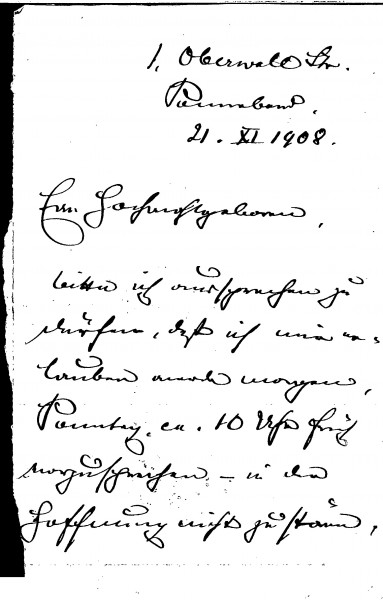 1, Oberwald Str.
Sonnabend,
21. XI 1908.
Ew. Hochwohlgeboren,
bitte ich aussprechen zu
dürfen, daß ich mir er-
lauben werde morgen,
Sonntag, ca. 10 Uhr früh
vorzusprechen – in der
Hoffnung nicht zu stören,